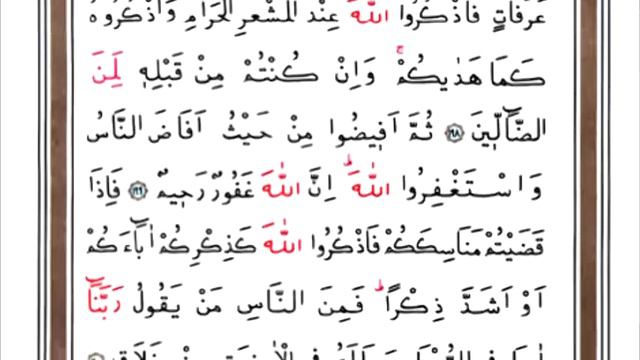 عَرَفَاتٍ فَاذْكُرُوا اللّٰهَ عِنْدَ الْمَشْعَرِ الْحَرَامِ وَاذْكُرُوهُ
كَمَا هَدٰيكُمْۚ وَاِنْ كُنْتُمْ مِنْ قَبْلِهٖ لَمِنَ
الضَّٓالّٖينَ ﴿١٩٨﴾ ثُمَّ اَفٖيضُوا مِنْ حَيْثُ اَفَاضَ النَّاسُ
وَاسْتَغْفِرُوا اللّٰهَۜ اِنَّ اللّٰهَ غَفُورٌ رَحٖيمٌ ﴿١٩٩﴾ فَاِذَا
قَضَيْتُمْ مَنَاسِكَكُمْ فَاذْكُرُوا اللّٰهَ كَذِكْرِكُمْ اٰبَٓاءَكُمْ
اَوْ اَشَدَّ ذِكْرًاۜ فَمِنَ النَّاسِ مَنْ يَقُولُ رَبَّنَٓا